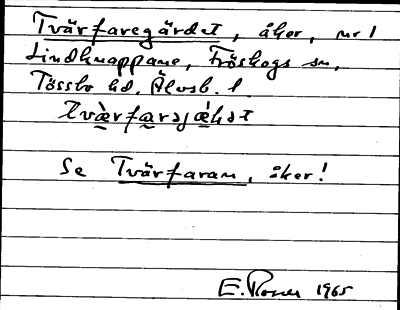 Tvärfaregärdet, åker, nr 1
Lindknappane, Fröskogs sn,
Tössbo hd, Älvsb. l.
Se Tvärfaran, åker!
E. 1965